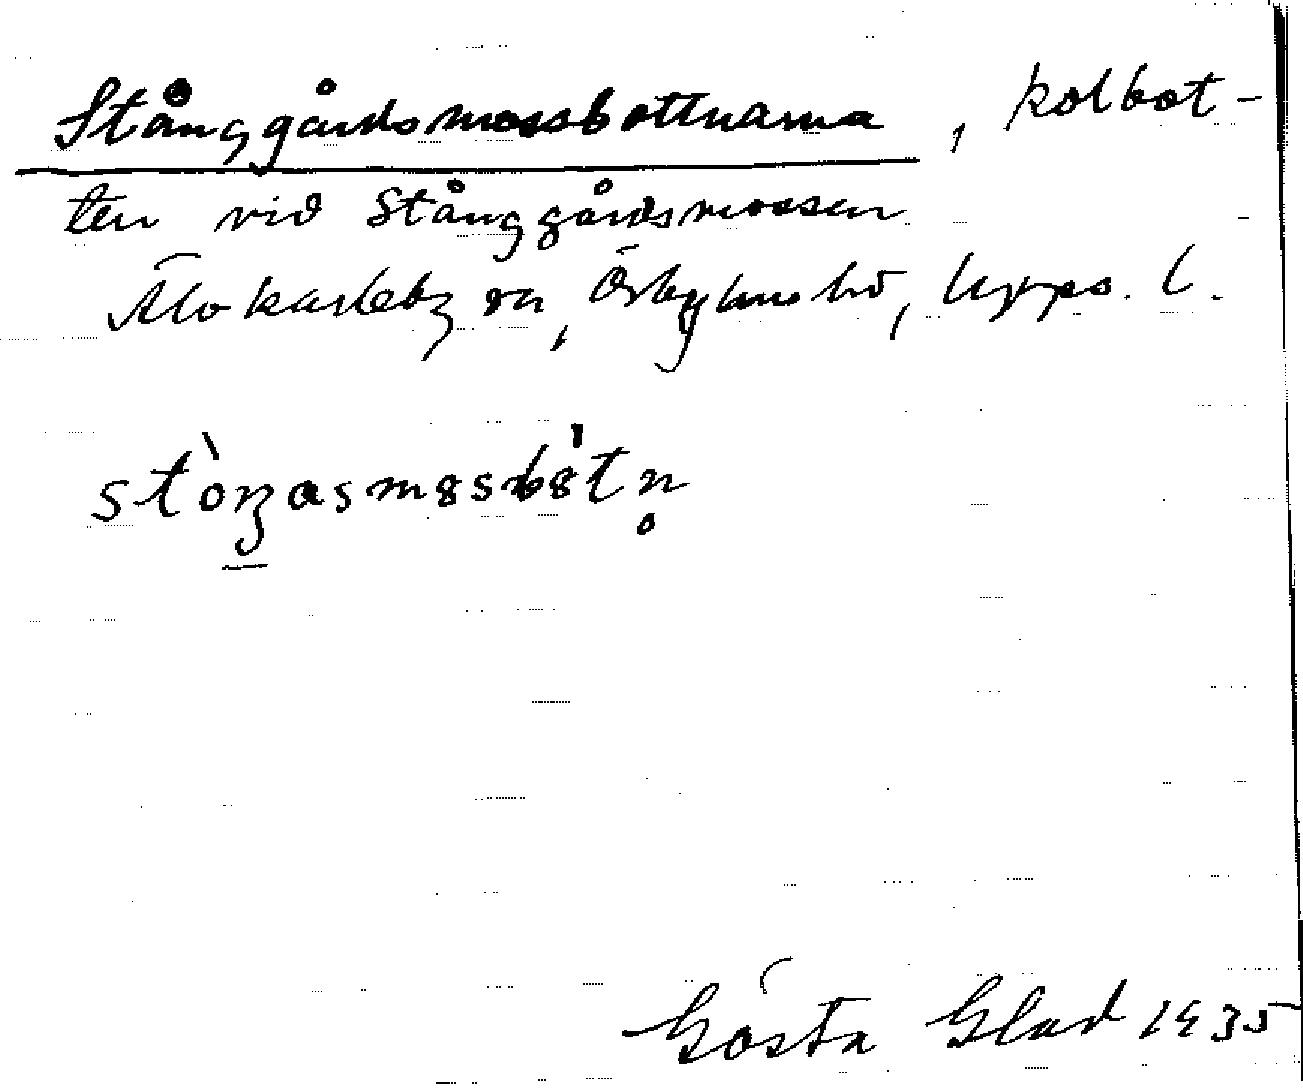 Stånggårdsmossbottnarna, kolbot-
ten vid Stånggårdsmossen
Älvkarleby sn, Örbyhus hd, Upps. l.
stòŋasmɞsbɞ́tn̥
Gösta Glad 1935